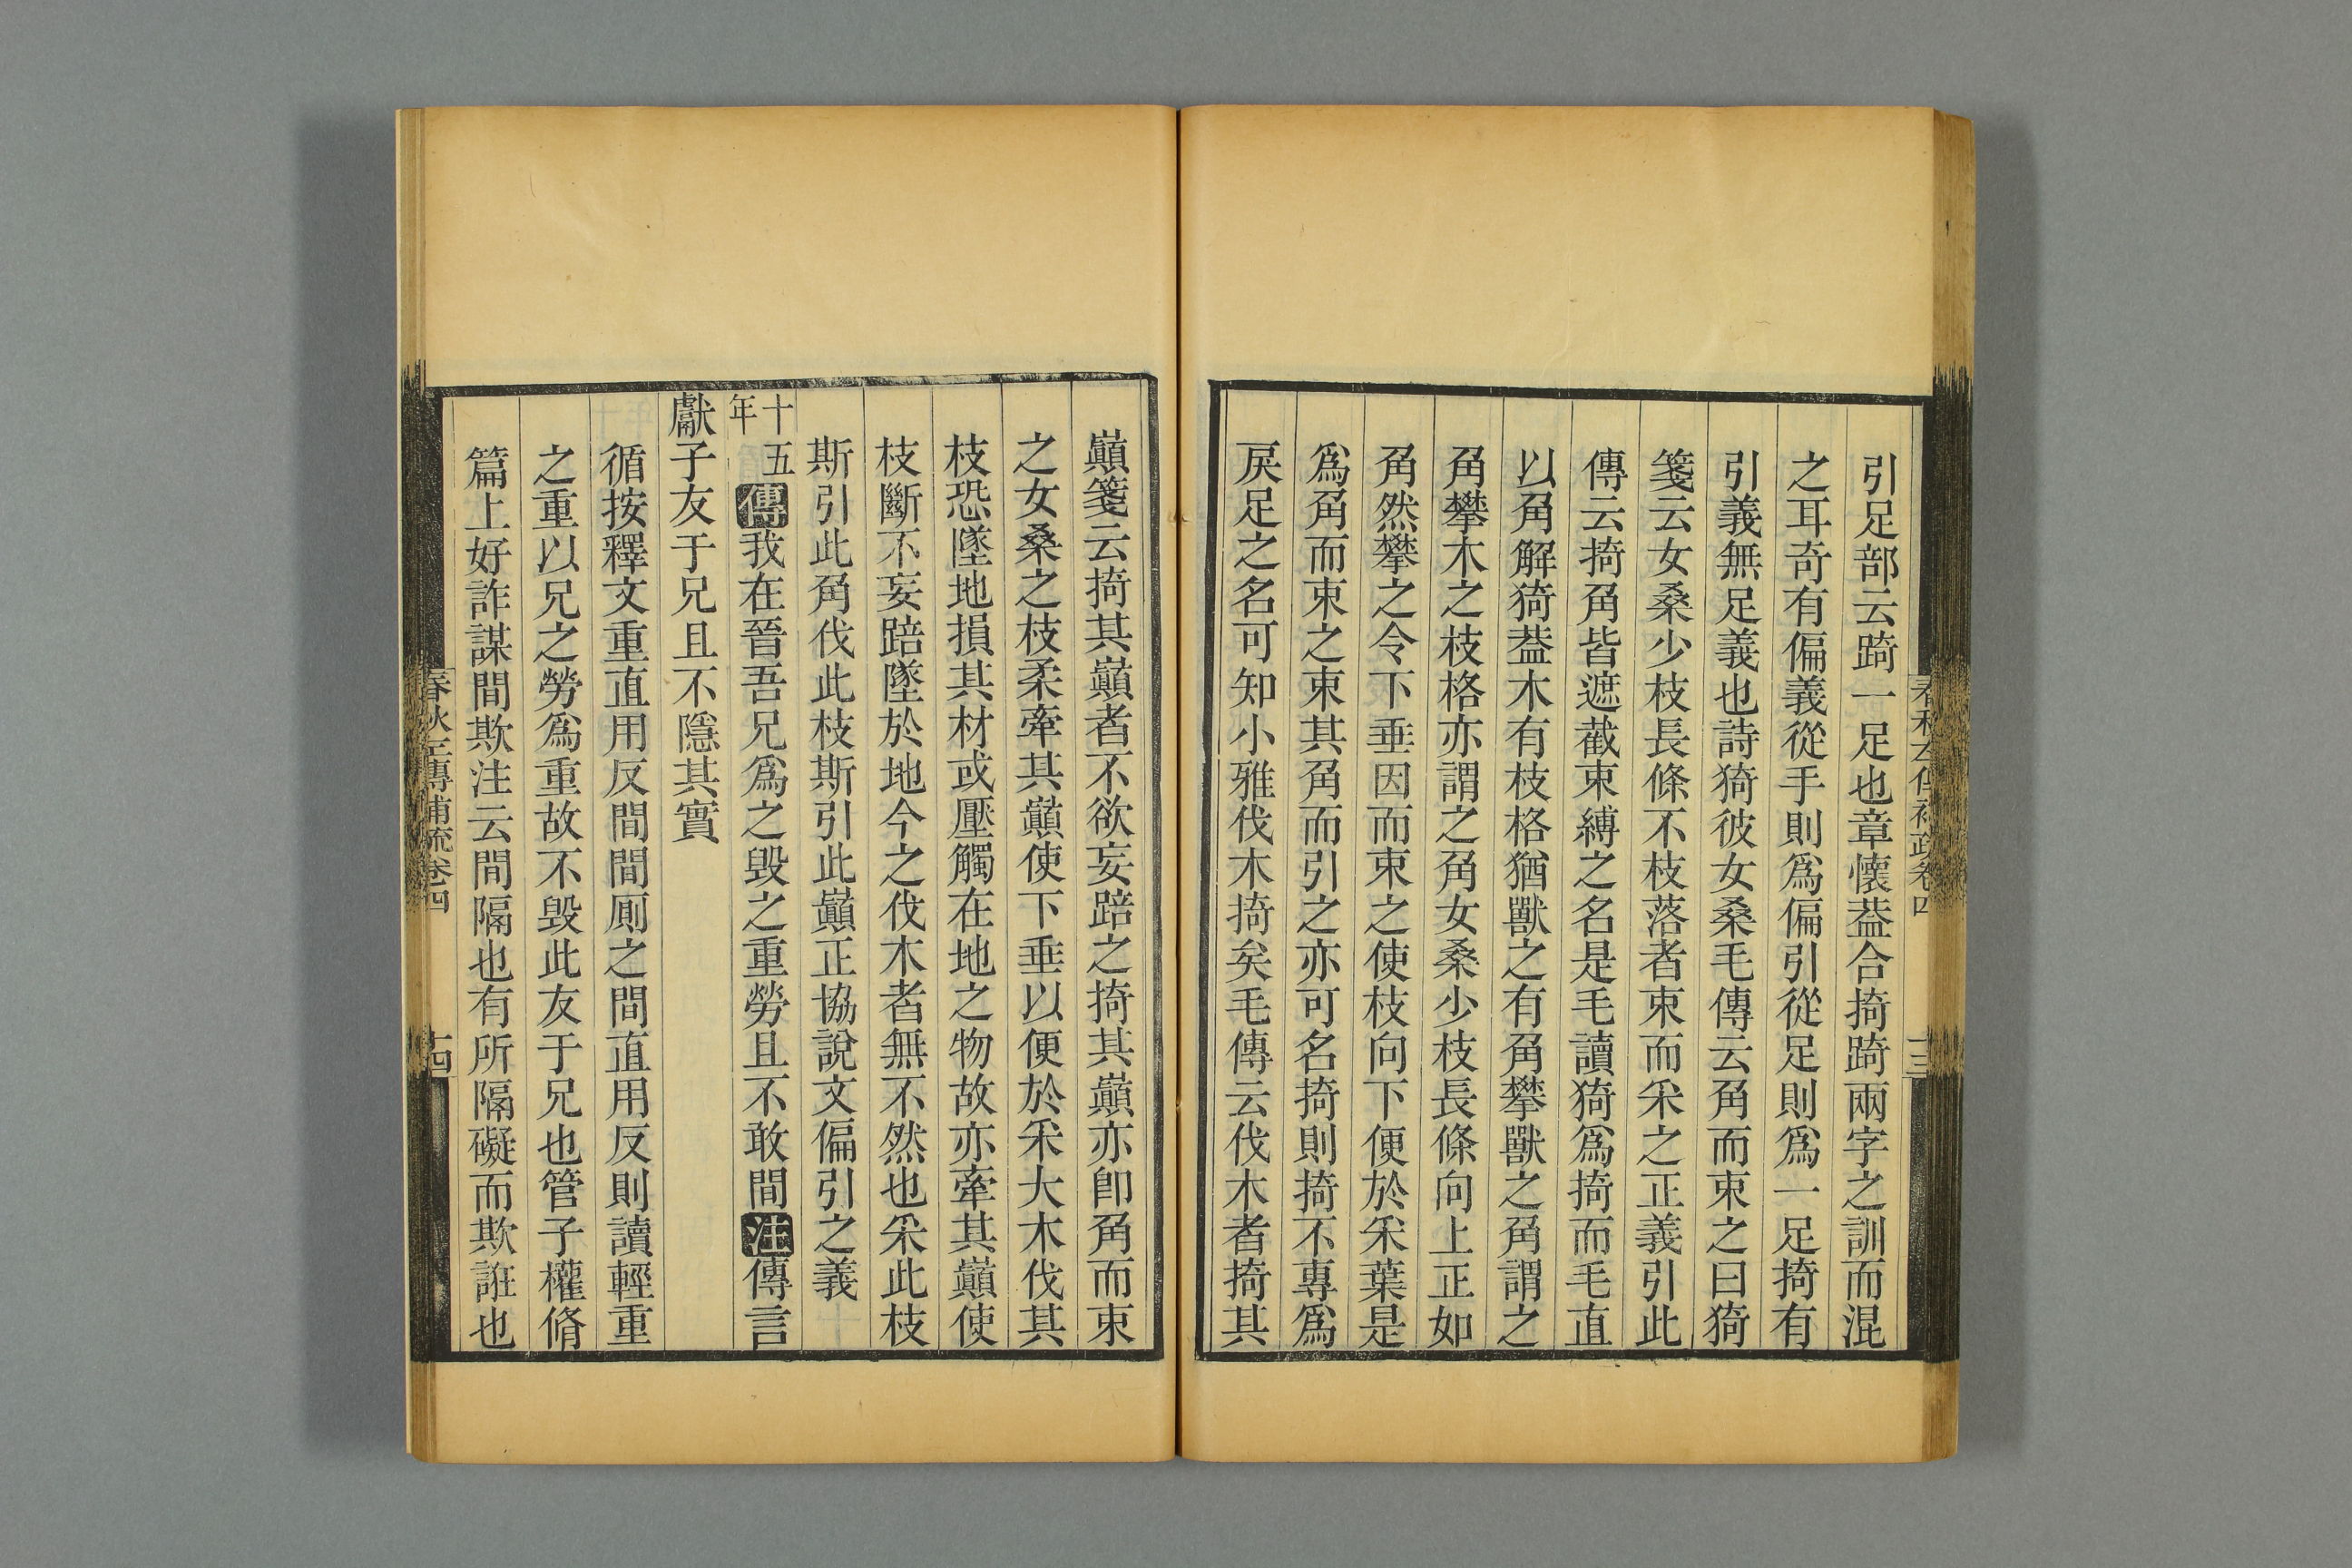 引足部云踦一足也章懷葢合掎踦兩字之訓而混
之耳奇有偏義從手則爲偏引從足則爲一足掎有
引義無足義也詩猗彼女桑毛傳云角而束之曰猗
箋云女桑少枝長條不枝落者束而采之正義引此
傳云掎角皆遮截束縛之名是毛讀猗爲掎而毛直
以角解猗葢木有枝格猶獸之有角攀獸之角謂之
角攀木之枝格亦謂之角女桑少枝長條向上正如
角然攀之令下垂因而束之使枝向下便於采葉是
爲角而束之束其角而引之亦可名掎則掎不專爲
戾足之名可知小雅伐木掎矣毛傳云伐木者掎其
春秋左傳補疏卷四
十三
巔箋云掎其巔者不欲妄踣之掎其巔亦卽角而束
之女桑之枝柔牽其巔使下垂以便於采大木伐其
枝恐墜地損其材或壓觸在地之物故亦牽其巔使
枝斷不妄踣墜於地今之伐木者無不然也采此枝
斯引此角伐此枝斯引此巔正協說文偏引之義
十五年傳我在晉吾兄爲之毀之重勞且不敢間注傳言
獻子友于兄且不隱其實
循按釋文重直用反間間厠之間直用反則讀輕重
之重以兄之勞爲重故不毀此友于兄也管子權脩
篇上好詐謀間欺注云間隔也有所隔礙而欺誑也
春秋左傳補疏卷四
十四